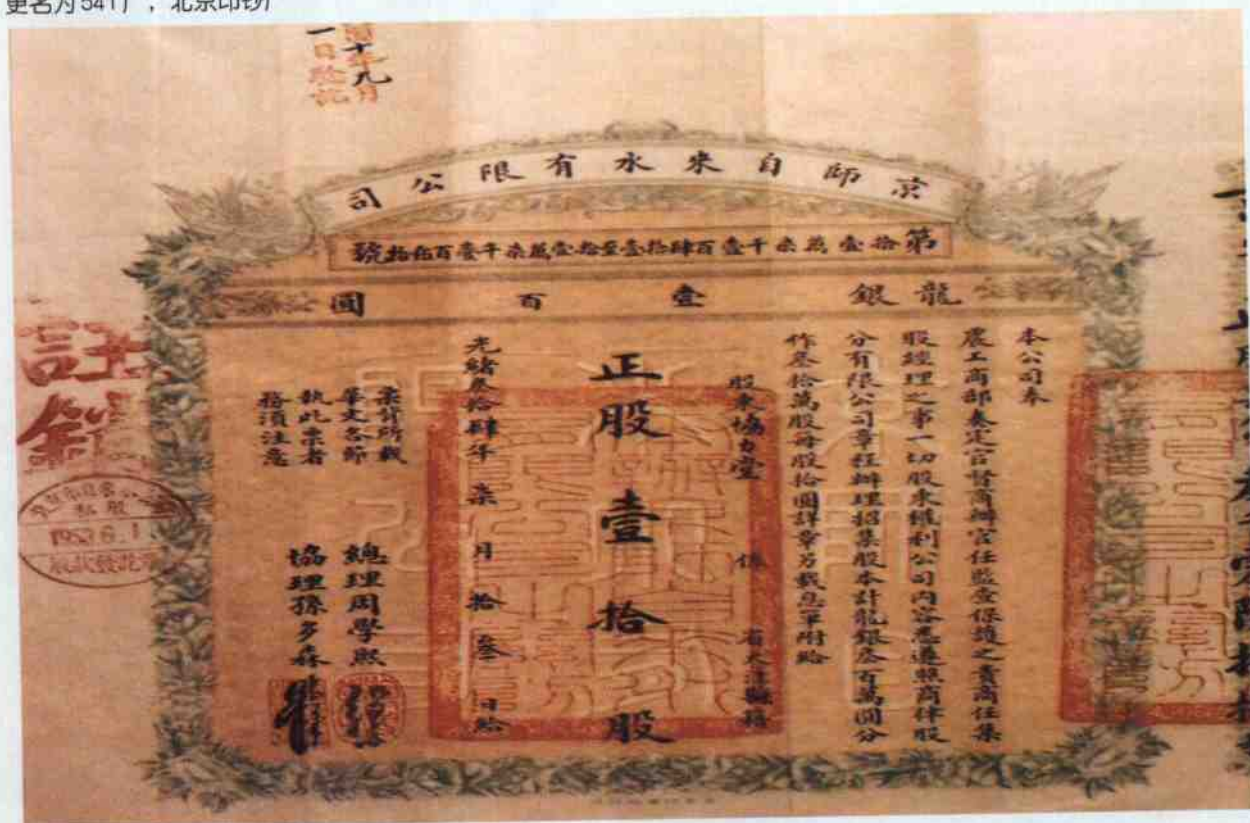 更名为541厂，北京印钞
國十年九月
一日驗訖
京師自來水有限公司
第拾壹萬柒千壹百肆拾壹至拾壹萬柒千壹百伍拾號
龍銀壹百圓
本公司奉
農工商部奏定官督商辦官任監查保護之責商任集
股經理之事一切股東權利公司內容悉遵照商律股
分有限公司章程辦理招集股本計龍銀叁百萬圓分
作叁拾萬股每股拾圓詳章另載息單附給
股東協力堂 係 省天津縣籍
正股壹拾股
光緒叁拾肆年柒月拾叁日給
票背所載
華文各節
執此票者
務須注意
總理周學熙
協理孫多森
註銷
私股